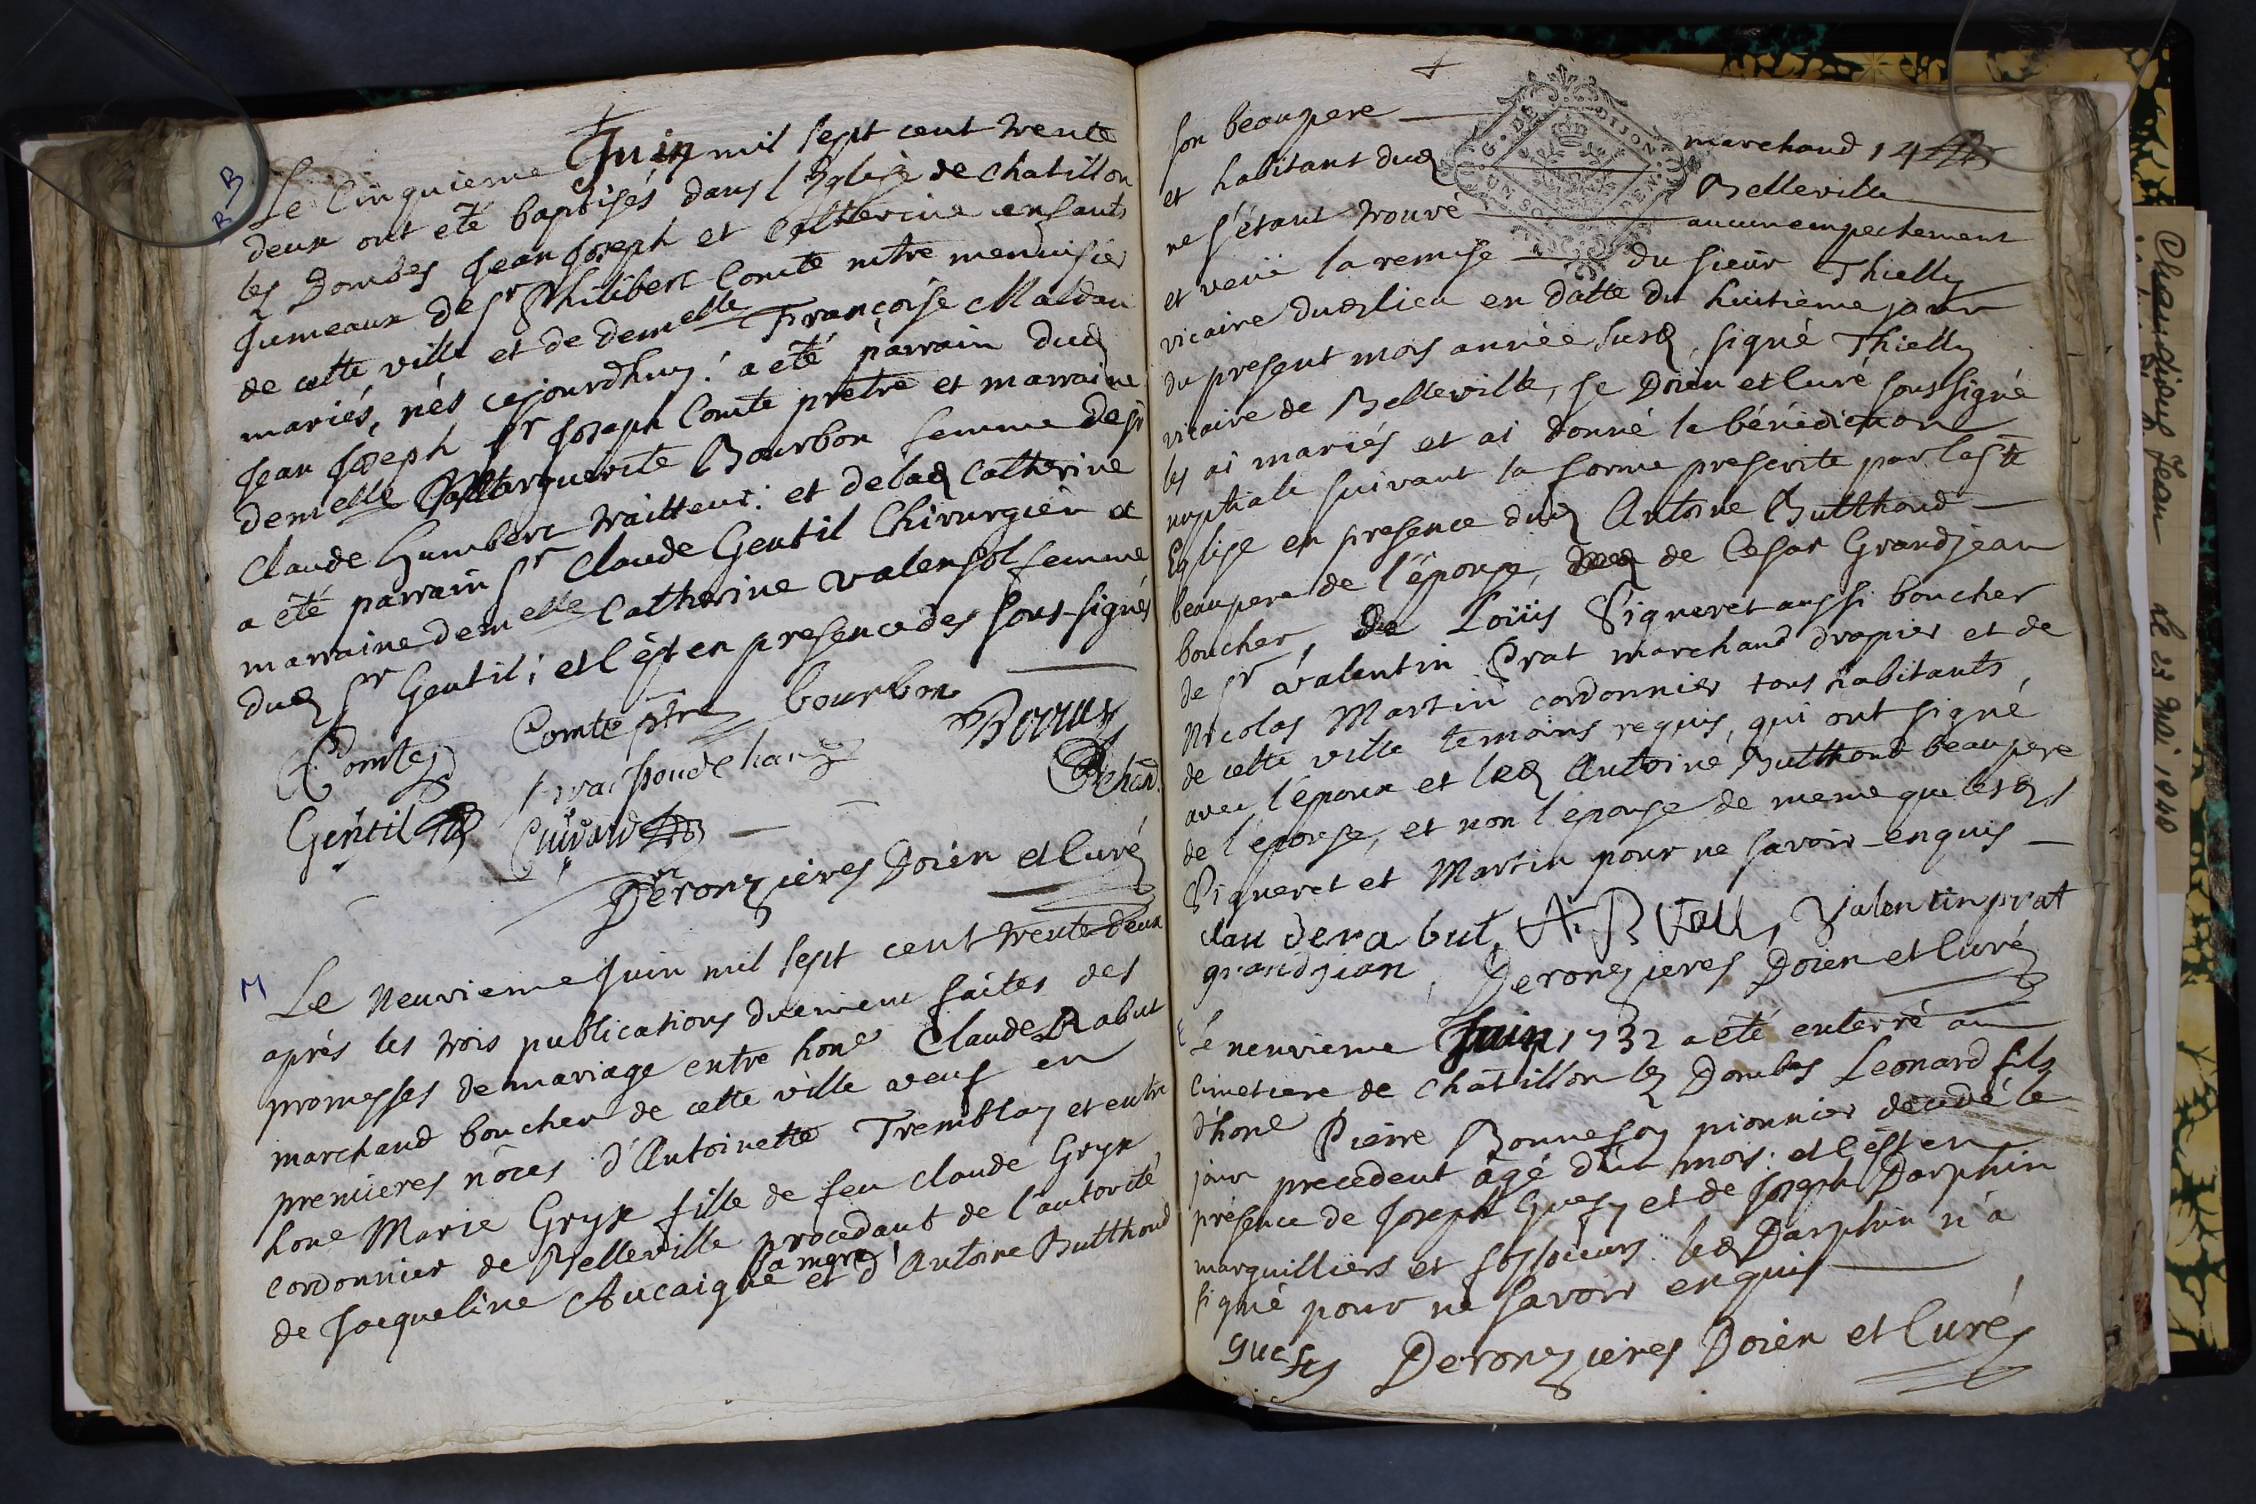 B
B
Le Cinquieme Juin mil sept cent trente
deux ont eté baptisés dans l'Eglise de Chatillon
les Dombes Jean Joseph et Catherine enfants
Jumeaux de sr Philibert Comte mtre menuisier
de cette ville et de demelle Françoise Maldan
mariés, nés cejourdhuy: a eté parrain dud
Jean Joseph sr Joseph Comte prêtre et marraine
demelle Marguerite Bourbon femme de sr
Claude Humbert traitteur: et de lad Catherine
a été parrain sr Claude Gentil Chirurgien et
marraine demelle Catherine Valensol femme
dud sr Gentil; et l'est en presence des sous-signés
Comte Comte ptre bourbon
Gentil
Deronzieres Doien et Curé
M
Le neuvieme Juin mil sept cent trente deux
aprés les trois publications duement faites des
promesses de mariage entre hone Claude Rabut
marchand boucher de cette ville veuf en
premieres nôces d'Antoinette Tremblay et entre
hone Marie Gryse fille de feu Claude Gryse
cordonnier de Belleville procedant de l'autorité
sa mere
de Jacqueline Aucaigne et d'Antoine Butthoud
son beaupere marchand 14
et habitant dud Belleville
ne s'étant trouvé aucun empechement
et veüe la remise du sieur Thielly
vicaire dud lieu en datte du huitième jour
du present mois année susd, signé Thielly
vicaire de Belleville, je Doien et Curé soussigné
les ai mariés et ai donné la bénédiction
nuptiale suivant la forme prescrite par la ste
Eglise en presence dud Antoine Butthoud
beaupere de l'épouse, de Cesar Grandjean
boucher, de Loüis Pigneret aussi boucher
de sr valentin Prat marchand drapier et de
Nicolas Martin cordonnier tous habitants
de cette ville temoins requis, qui ont signé
avec l'époux et led Antoine Butthoud beaupere
de l'épouse, et non l'épouse de meme que lesd
Pigneret et Martin pour ne savoir enquis
clau de rabut, Valentin prat
grandjean, Deronzieres Doien et Curé
G. DE DIJON
UN SOL
Le neuvieme Juin 1732 a eté enterré au
Cimetiere de Chatillon lez Dombes Leonard fils
d'hone Pierre Bonnefoy pionnier decedé le
jour precedent âgé d'un mois: et l'est en
présence de Joseph Guesy et de Joseph Darphin
marguilliers et fossoieurs: led Darphin n'a
signé pour ne savoir enquis
Deronzieres Doien et Curé
Jean le 23 Mai 1840